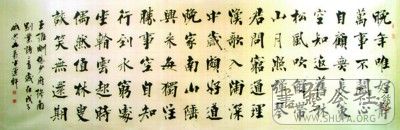 晚年唯好靜
萬事不關心
自顧無長策
空知返舊林
松風吹解帶
山月照彈琴
君問窮通理
漁歌入浦深
中歲頗好道
晚家南山陲
興來每獨往
勝事空自知
行到水窮處
坐看雲起時
偶然值林叟
談笑無還期
王維酬張少府終南
別業詩二首
WWW.SHUFA.ORG